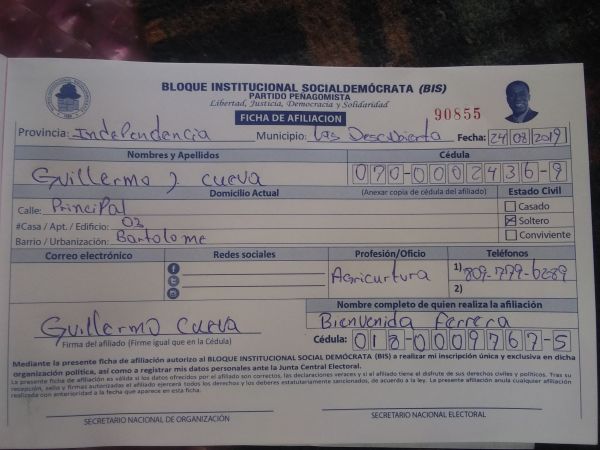 BLOQUE INSTITUCIONAL SOCIALDEMÓCRATA (BIS)
PARTIDO PEÑAGOMISTA
Libertad, Justicia, Democracia y Solidaridad
FICHA DE AFILIACION
90855
Provincia: IndePendencia Municipio: Las Descubierta Fecha: 24 08 2019
Nombres y Apellidos Cédula
Guillermo J Cueva 070-0002436-9
Domicilio Actual (Anexar copia de cédula del afiliado) Estado Civil
Calle: PrinciPal Casado
#Casa / Apt. / Edificio: 03 Soltero
Barrio / Urbanización: Bartolome Conviviente
Correo electrónico Redes sociales Profesión/Oficio Teléfonos
Agricurtura 1) 809-779-6289
2)
Nombre completo de quien realiza la afiliación
Guillermo Cueva Bienvenida Ferrera
Firma del afiliado (Firme igual que en la Cédula) Cédula: 018-0009767-5
Mediante la presente ficha de afiliación autorizo al BLOQUE INSTITUCIONAL SOCIAL DEMÓCRATA (BIS) a realizar mi inscripción única y exclusiva en dicha
organización política, así como a registrar mis datos personales ante la Junta Central Electoral.
La presente ficha de afiliación es válida si los datos ofrecidos por el afiliado son correctos, las declaraciones veraces y si el afiliado tiene el disfrute de sus derechos civiles y políticos. Tras su
recepción, sello y firmas autorizadas el afiliado ejercerá todos los derechos y los deberes estatutariamente sancionados, de acuerdo a la ley. La presente afiliación anula cualquier afiliación
realizada con anterioridad a la fecha que aparece en esta ficha.
SECRETARIO NACIONAL DE ORGANIZACIÓN SECRETARIO NACIONAL ELECTORAL